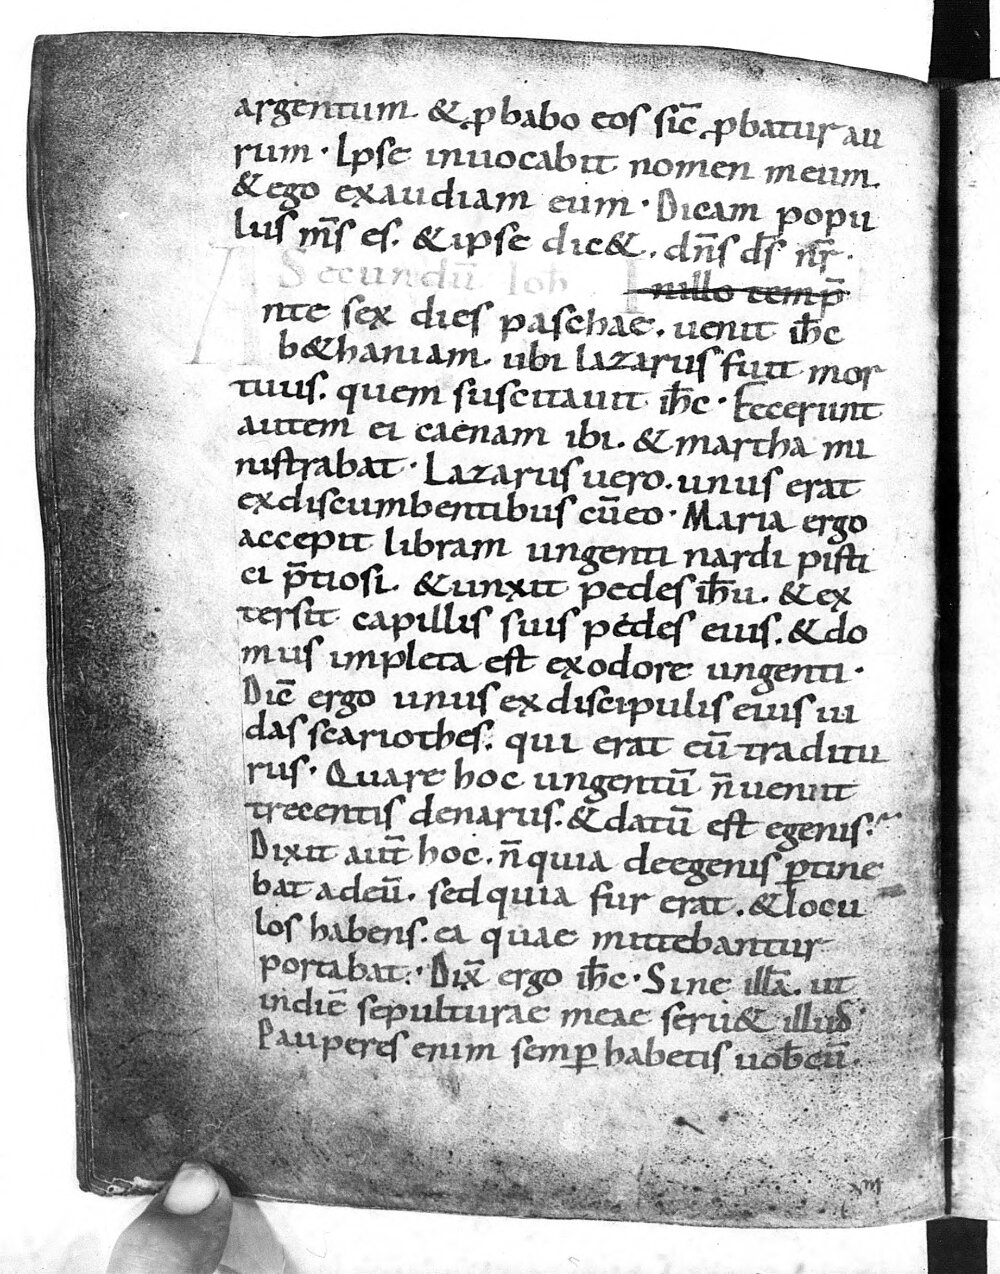 argentum. & ꝓbabo eos sic̄ ꝓbatur au
rum · Ipse inuocabit nomen meum.
& ego exaudiam eum · Dicam popu
lus m̄s es. & ipse dic&. dn̄s ds̄ nr̄ ·
Secundū Ioh I
nillo temp̄
A nte sex dies paschae. uenit ih̄c
b&haniam. ubi lazarus fuit mor
tuus. quem suscitauit ih̄c · Fecerunt
autem ei caenam ibi. & martha mi
nistrabat · Lazarus uero. unus erat
ex discumbentibus cūeo · Maria ergo
accepit libram ungenti nardi pisti
ci p̄tiosi. & unxit pedes ih̄u. & ex
tersit capillis suis pedes eius. & do
mus impleta est exodore ungenti ·
Dic̄ ergo unus ex discipulis eius iu
das scariothes. qui erat eū traditu
rus · Quare hoc ungentū n̄ ueniit
trecentis denariis. & datū est egenis.
Dixit aut̄ hoc. n̄ quia deegenis ꝑtine
bat adeū. sed quia fur erat. & locu
los habens. ea quae mittebantur
portabat · Dix̄ ergo ih̄c · Sine illā. ut
indiē sepulturae meae seru& illud
Pauperes enim semꝑ habetis uob̄cū.
viii